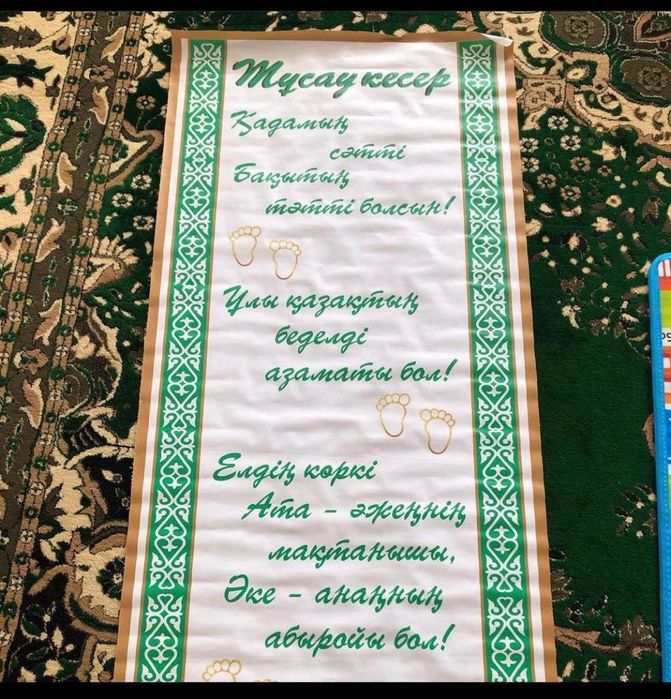 Тұсау кесер
Қадамың
сәтті
Бақытың
тәтті болсын!
Ұлы қазақтың
беделді
азаматы бол!
Елдің көркі
Ата - әжеңнің
мақтанышы,
Әке - анаңның
абыройы бол!